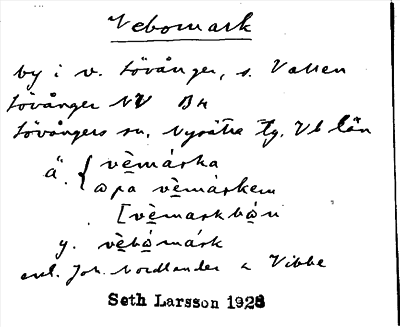 Vebomark
by i v. Lövånger, s. Vallen
Lövånger NV Bh
Lövångers sn, Nysätra tg. Vb län
ä. { vè̱máska
ɷpa vè̱máskem
[vè̱maskbó̱n
y. vè̱bó̱másk
enl. Joh. Nordlander < Vibbe
Seth Larsson 1928